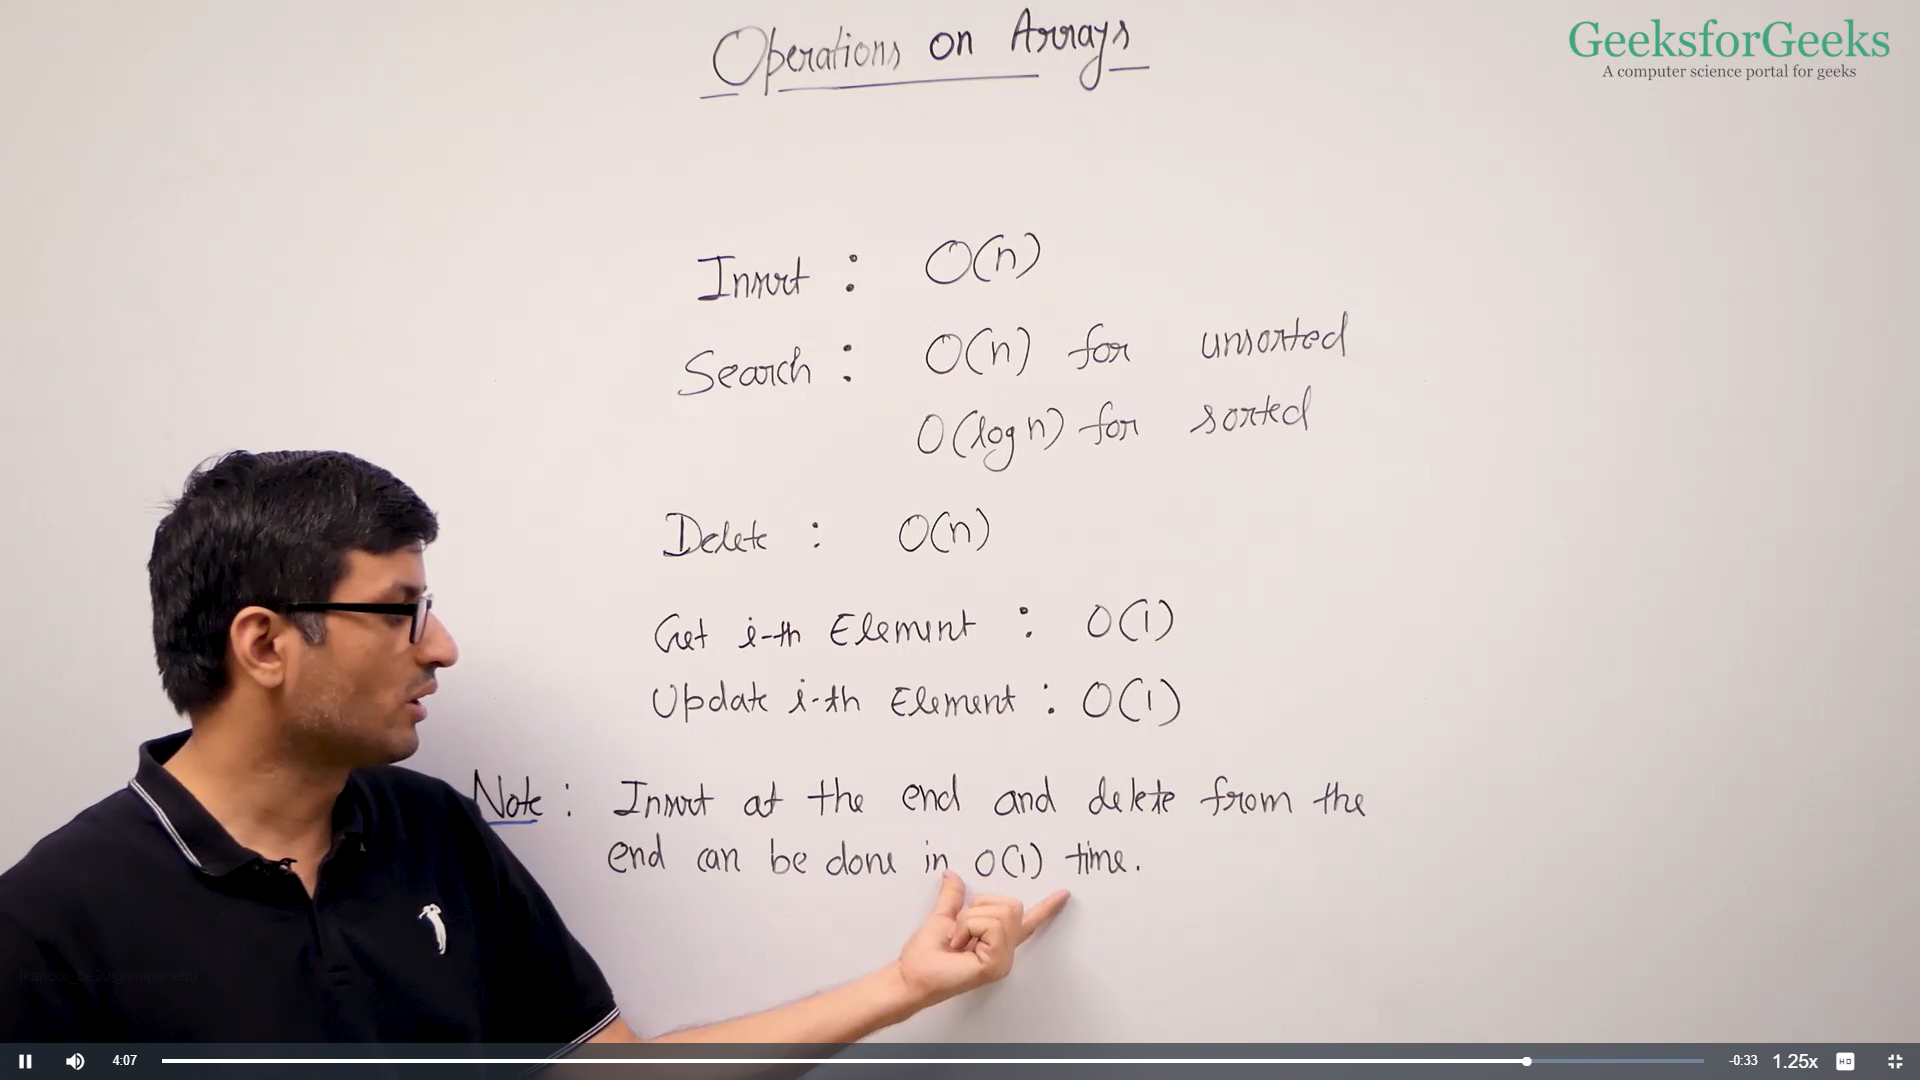 Operations on Arrays
GeeksforGeeks
A computer science portal for geeks
Insert : O(n)
Search : O(n) for unsorted
O(log n) for sorted
Delete : O(n)
Get i-th Element : O(1)
Update i-th Element : O(1)
Note : Insert at the end and delete from the
end can be done in O(1) time.
tkapoor_be20@thapar.edu
4:07
-0:33
1.25x
HD